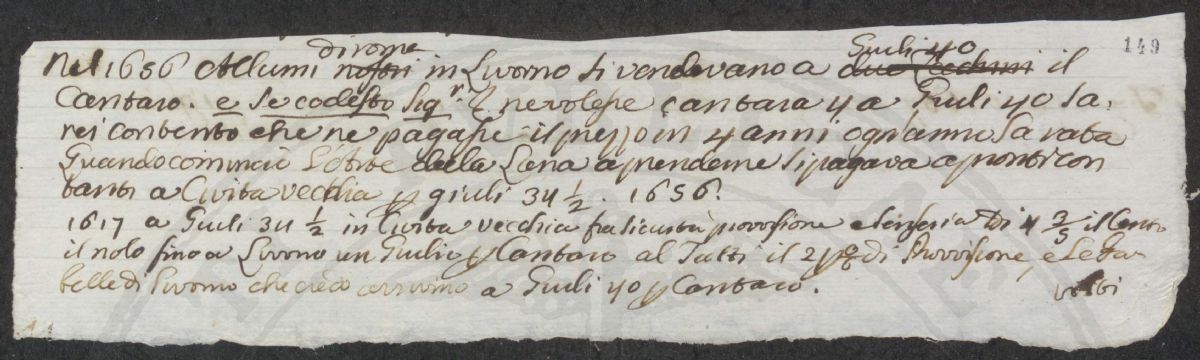 149
di rome Giuli 40
Nel 1656 Allumi nostri in Livorno si vendevano a due Zecchini il
Cantaro. e se codesto Sigr. Z ne volesse cantara 4 a Giuli 40 sa,
rei contento che ne pagasse il prezzo in 4 anni ogni anno la rata
Quando cominciò l'Arte della Lana a prenderne si pagava a pronti con
tanti a Civita vecchia p giuli 34 1/2. 1656.
1617 a Giuli 34 1/2 in Civita vecchia fra sicurtà provisione e senseria di 4 3/5 il Cento
il nolo fino a Livorno un Giulio p Cantaro al Tatti il 2 p% di Provvisione, e le Ga
belle di Livorno che credo arrivino a Giuli 40 p Cantaro.